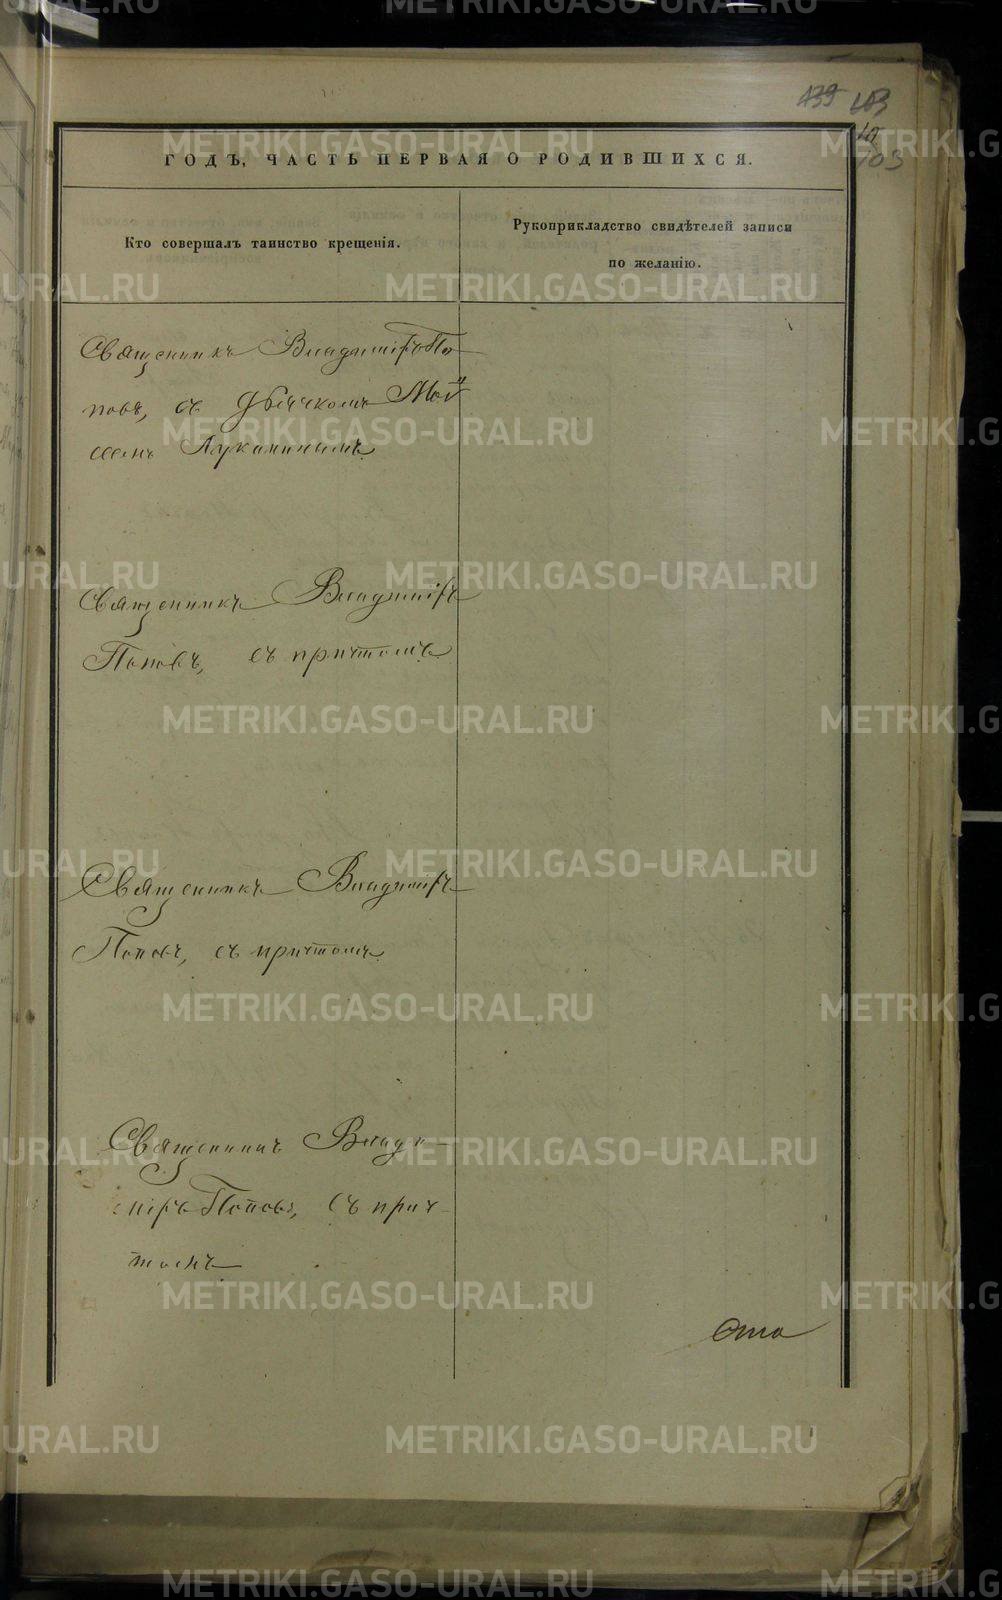 103
103
ГОДЪ, ЧАСТЬ ПЕРВАЯ О РОДИВШИХСЯ.
Кто совершалъ таинство крещенія.
Рукоприкладство свидѣтелей записи
по желанію.
Священникъ Владиміръ По
повъ, съ дьячкомъ Мои
сеемъ Лукинымъ
Священникъ Владиміръ
Поповъ, съ причтомъ
Священникъ Владиміръ
Поповъ, съ причтомъ
Священникъ Влади-
міръ Поповъ, съ прич-
томъ
METRIKI.GASO-URAL.RU